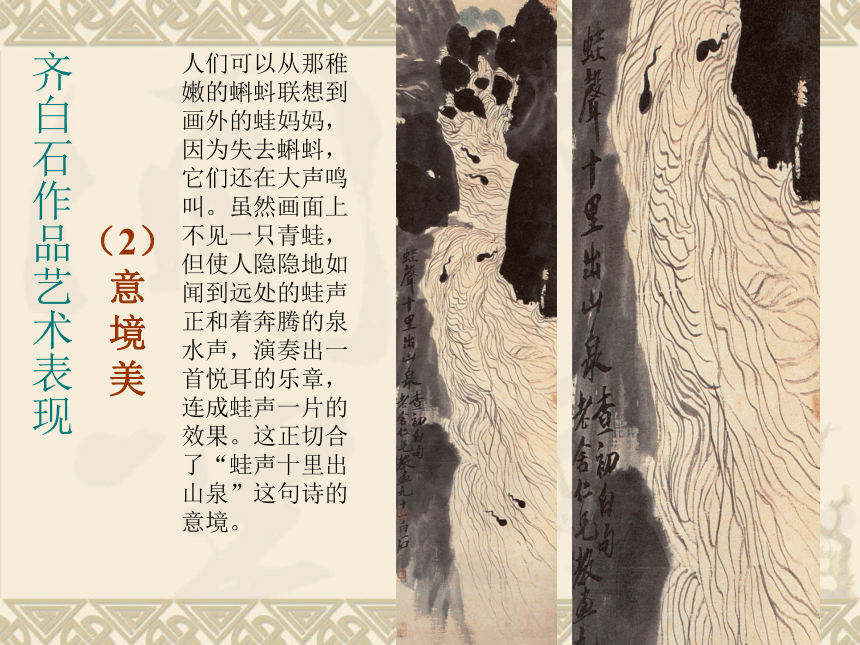 齐白石作品艺术表现
（2）意境美
人们可以从那稚
嫩的蝌蚪联想到
画外的蛙妈妈，
因为失去蝌蚪，
它们还在大声鸣
叫。虽然画面上
不见一只青蛙，
但使人隐隐地如
闻到远处的蛙声
正和着奔腾的泉
水声，演奏出一
首悦耳的乐章，
连成蛙声一片的
效果。这正切合
了“蛙声十里出
山泉”这句诗的
意境。
蛙聲十里出山泉
查初白句
老舍仁兄教畫九十一白石
蛙聲十里出山泉
查初白句
老舍仁兄教畫